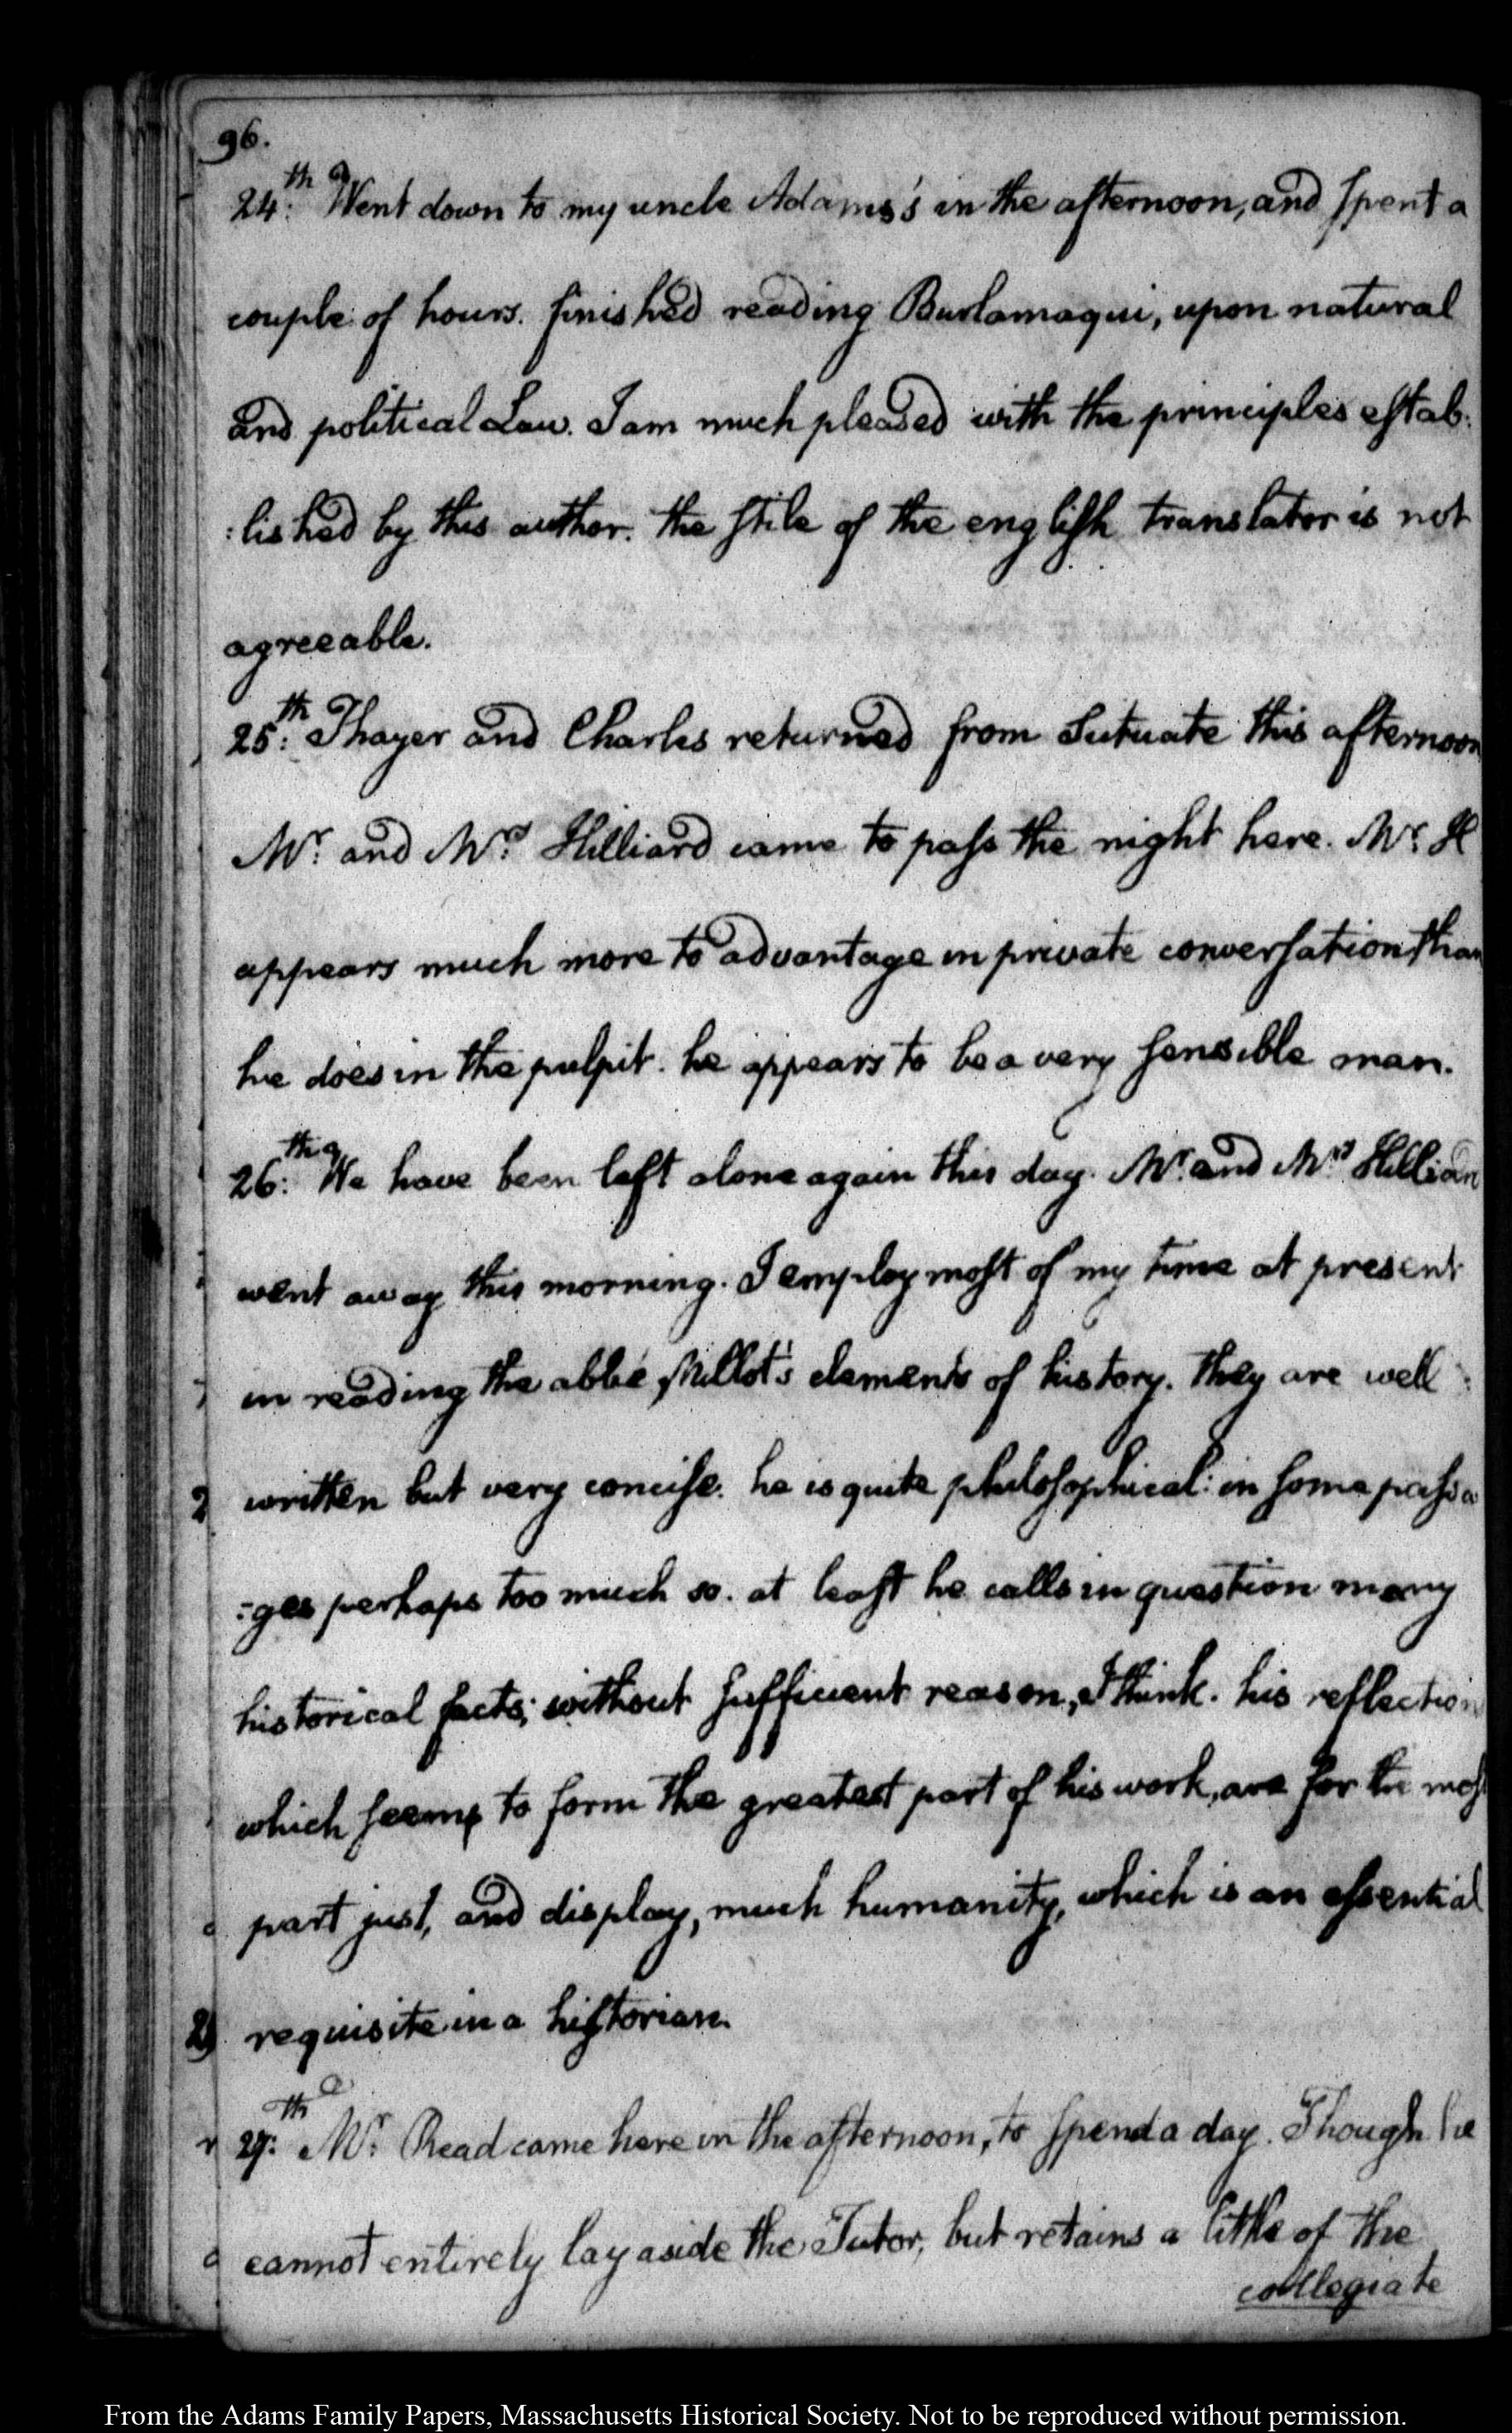 96.
24th: Went down to my uncle Adams's in the afternoon, and spent a
couple of hours. finished reading Burlamaqui, upon natural
and political Law. I am much pleased with the principles estab:
:lished by this author. the stile of the english translator is not
agreeable.
25th: Thayer and Charles returned from Scituate this afternoon
Mr. and Mrs. Hilliard came to pass the night here. Mr. H
appears much more to advantage in private conversation than
he does in the pulpit. he appears to be a very sensible man.
26th: We have been left alone again this day. Mr. and Mrs. Hilliard
went away this morning. I employ most of my time at present
in reading the abbé Millot's elements of history. they are well
written but very concise. he is quite philosophical: in some passa
:ges perhaps too much so. at least he calls in question many
historical facts; without sufficient reason, I think. his reflection
which seems to form the greatest part of his work, are for the most
part just, and display, much humanity, which is an essential
requisite in a historian.
27th: Mr. Read came here in the afternoon, to spend a day. Though he
cannot entirely lay aside the Tutor, but retains a little of the
collegiate
From the Adams Family Papers, Massachusetts Historical Society. Not to be reproduced without permission.